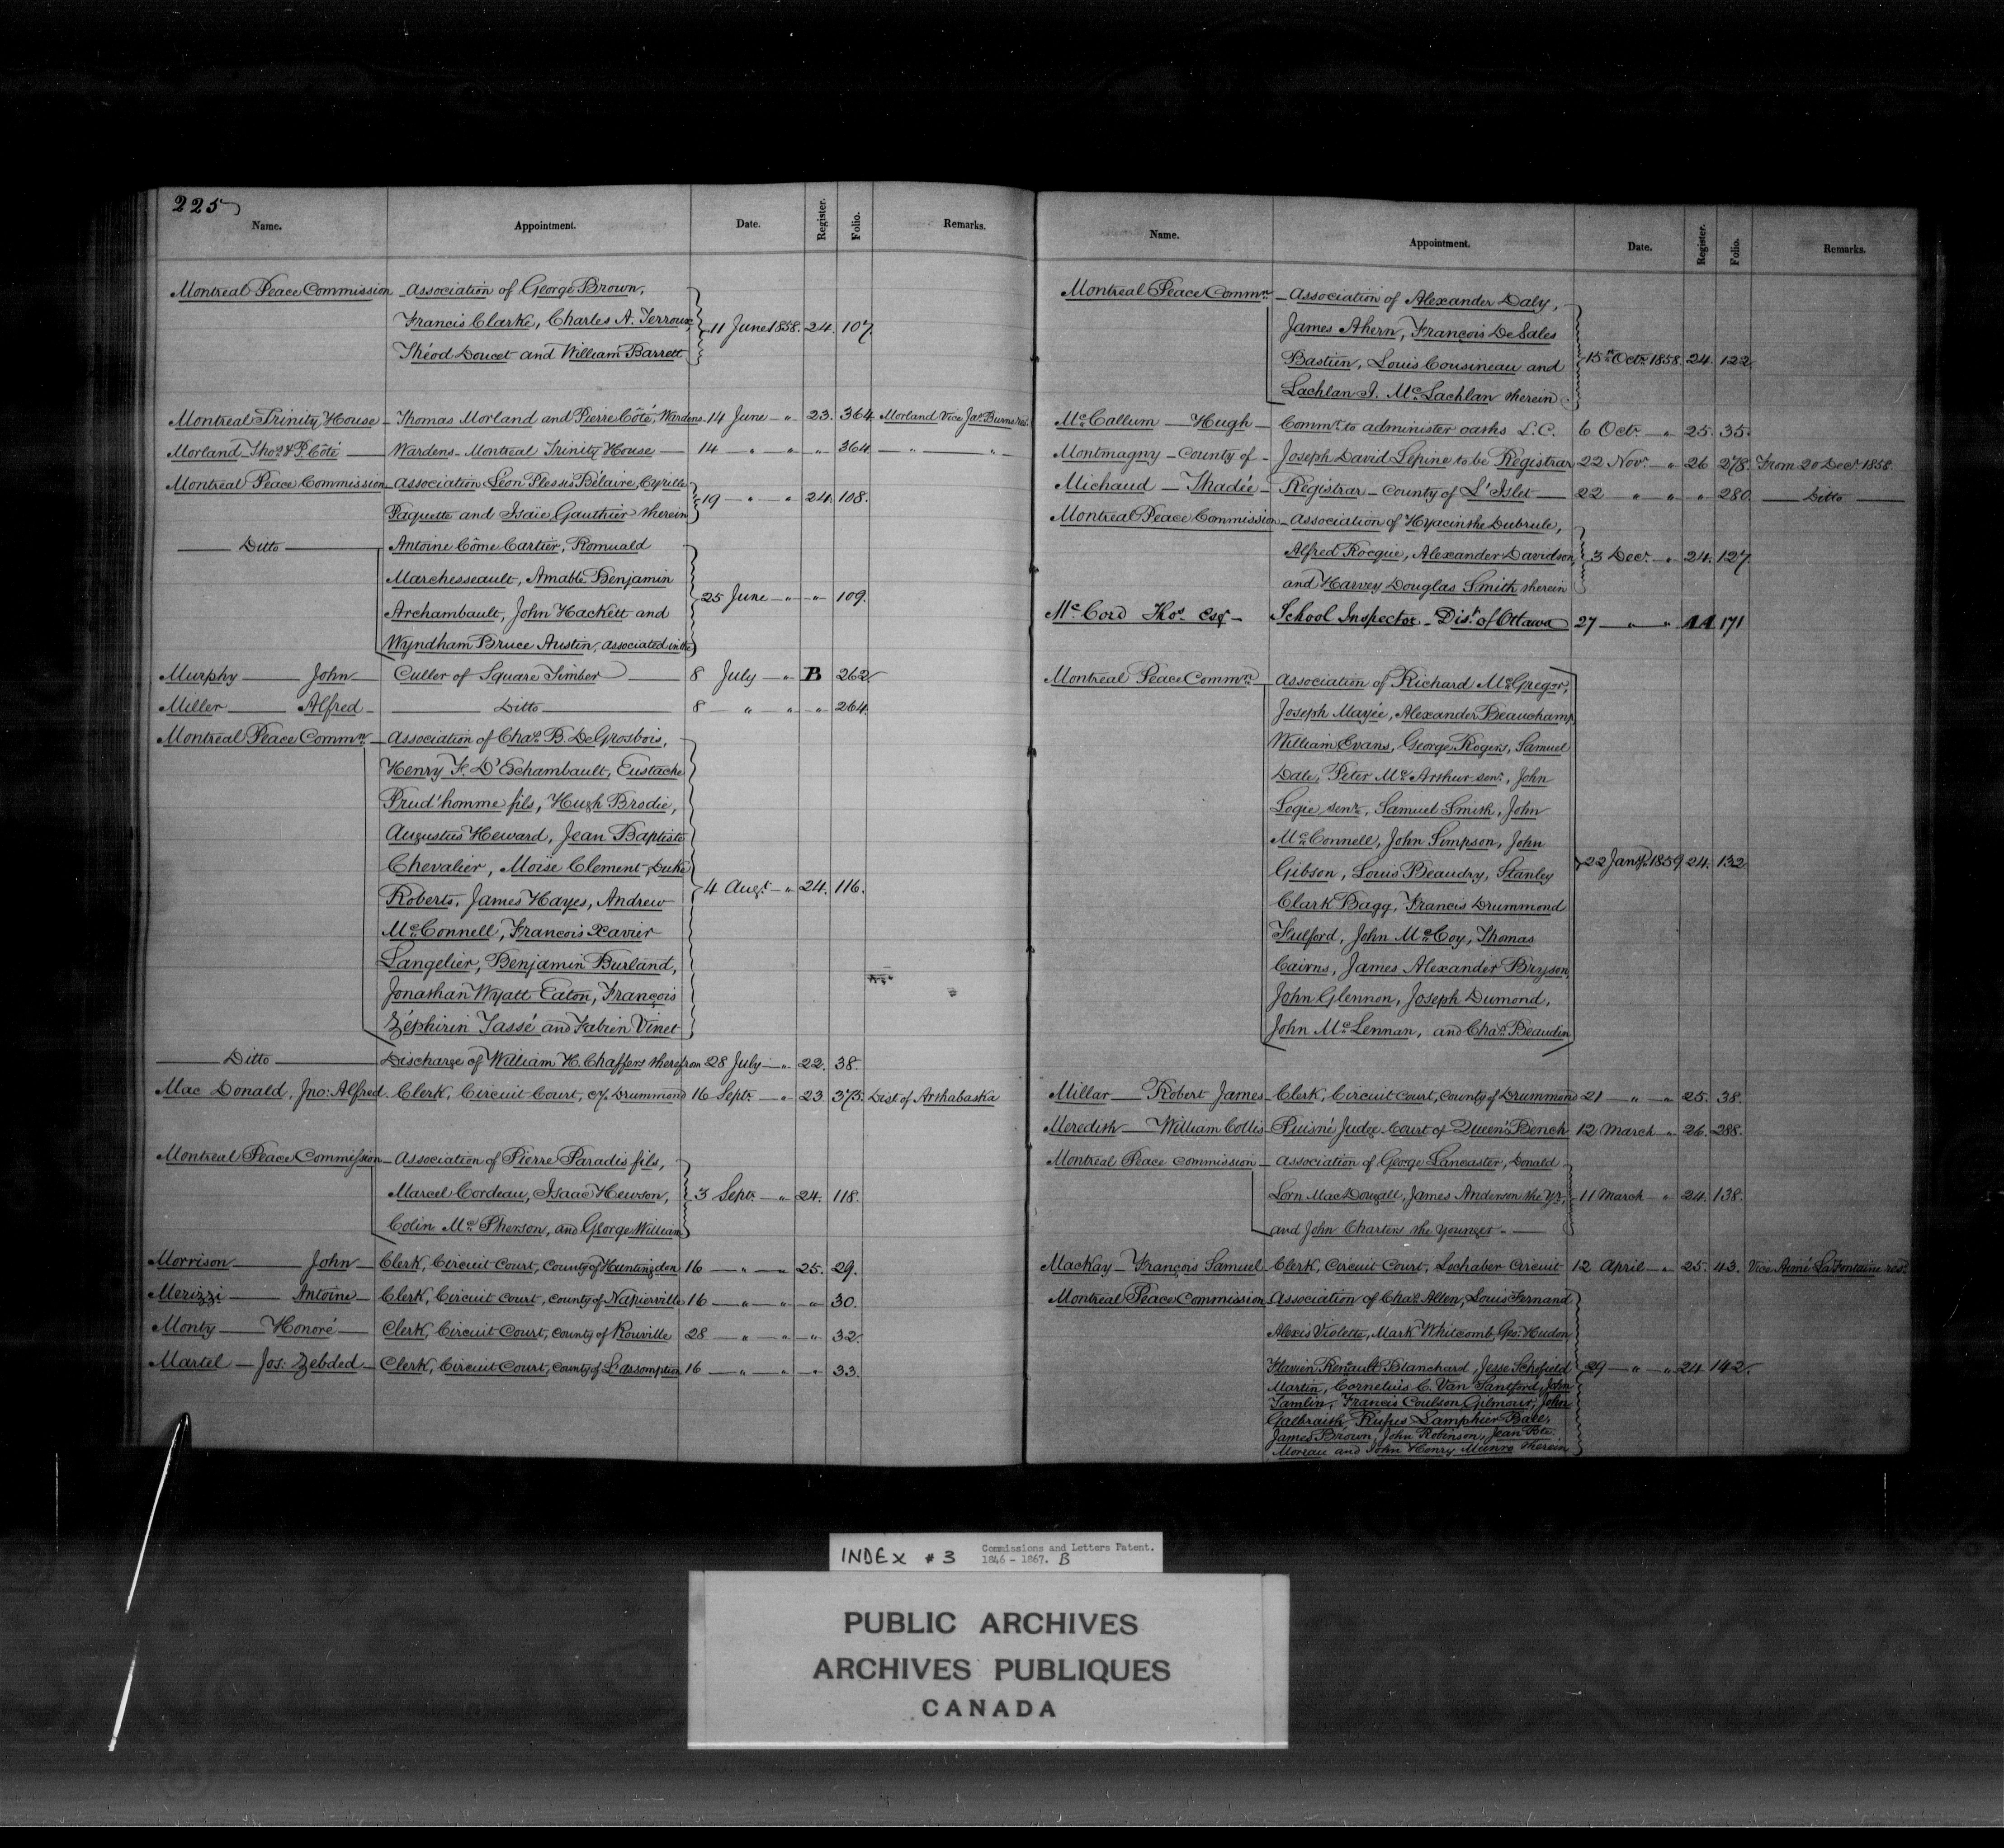 225
Name. Appointment. Date. Register. Folio. Remarks.
Montreal Peace Commission - Association of George Brown,
Francis Clarke, Charles A. Terroux, 11 June 1858. 24. 107.
Théod Doucet and William Barrett
Montreal Trinity House - Thomas Morland and Pierre Côté, Wardens. 14 June " 23. 364. Morland Vice Jas. Burns res.
Morland Thos. & P. Côté Wardens - Montreal Trinity House 14 " " " 364. " "
Montreal Peace Commission - Association Léon Plessis Bélaire, Cyrille
Paquette and Isaïe Gauthier therein 19 " " 24. 108.
Ditto Antoine Côme Cartier, Romuald
Marchesseault, Amable Benjamin
Archambault, John Hackett and 25 June " " 109.
Wyndham Bruce Austin, associated in the
Murphy John Culler of Square Timber 8 July " B 262.
Miller Alfred Ditto 8 " " " 264.
Montreal Peace Commn. - Association of Chas. B. DeGrosbois,
Henry F. D'Eschambault, Eustache
Prud'homme fils, Hugh Brodie,
Augustus Heward, Jean Baptiste
Chevalier, Moïse Clement, Duke
Roberts, James Hayes, Andrew 4 Augt. " 24. 116.
McConnell, François Xavier
Langelier, Benjamin Burland,
Jonathan Wyatt Eaton, François
Zéphirin Tassé and Fabien Vinet
Ditto Discharge of William H. Chaffers therefrom 28 July " 22. 38.
Mac Donald, Jno: Alfred. Clerk, Circuit Court, Cy. Drummond 16 Septr. " 23. 373. Dist of Arthabaska
Montreal Peace Commission - Association of Pierre Paradis fils,
Marcel Cordeau, Isaac Hewson, 3 Septr. " 24. 118.
Colin McPherson, and George William
Morrison John Clerk, Circuit Court, County of Huntingdon 16 " " 25. 29.
Merizzi Antoine Clerk, Circuit Court, County of Napierville 16 " " " 30.
Monty Honoré Clerk, Circuit Court, County of Rouville 28 " " " 32.
Martel Jos: Zebded Clerk, Circuit Court, County of L'assomption 16 " " " 33.
Name. Appointment. Date. Register. Folio. Remarks.
Montreal Peace Commn. - Association of Alexander Daly,
James Ahern, François DeSales
Bastien, Louis Cousineau and 15th Octr. 1858. 24. 122.
Lachlan I. McLachlan therein
McCallum Hugh Commr. to administer oaths L.C. 6 Octr. " 25. 35.
Montmagny - County of - Joseph David Lepine to be Registrar 22 Novr. " 26 278. From 20 Decr. 1858.
Michaud Thadée Registrar - County of L'Islet 22 " " " 280. Ditto
Montreal Peace Commission - Association of Hyacinthe Dubrule,
Alfred Rocque, Alexander Davidson, 3 Decr. " 24. 127.
and Harvey Douglas Smith therein
McCord Thos. Esqr School Inspector - Dist. of Ottawa 27 " " AA 171
Montreal Peace Commn. Association of Richard McGregor,
Joseph Mayée, Alexander Beauchamp,
William Evans, George Rogers, Samuel
Dale, Peter McArthur senr., John
Logie senr., Samuel Smith, John
McConnell, John Simpson, John
Gibson, Louis Beaudry, Stanley 22 Jany. 1859 24. 132.
Clark Bagg, Francis Drummond
Fulford, John McCoy, Thomas
Cairns, James Alexander Bryson,
John Glennon, Joseph Dumond,
John McLennan, and Chas. Beaudin
Millar Robert James Clerk, Circuit Court, County of Drummond 21 " " 25. 38.
Meredith William Collis Puisné Judge - Court of Queen's Bench 12 March " 26. 288.
Montreal Peace Commission - Association of George Lancaster, Donald
Lorn MacDougall, James Anderson the Yr. 11 March " 24. 138.
and John Charters the Younger.
MacKay François Samuel Clerk, Circuit Court, Lochaber Circuit 12 April " 25. 43. Vice Aemé LaFontaine resd.
Montreal Peace Commission Association of Chas. Allen, Louis Fernand
Alexis Violette, Mark Whitcomb, Geo. Hudon
Flavien Renault Blanchard, Jesse Schofield 29 " " 24 142.
Martin, Cornelius C. Van Santford, John
Tamlin, Francis Coulson Gilmour, John
Galbraith, Rufus Lamphier Bate,
James Brown, John Robinson, Jean Bte.
Moreau and John Henry Munro therein
INDEX #3 Commissions and Letters Patent.
1846 - 1867. B
PUBLIC ARCHIVES
ARCHIVES PUBLIQUES
CANADA